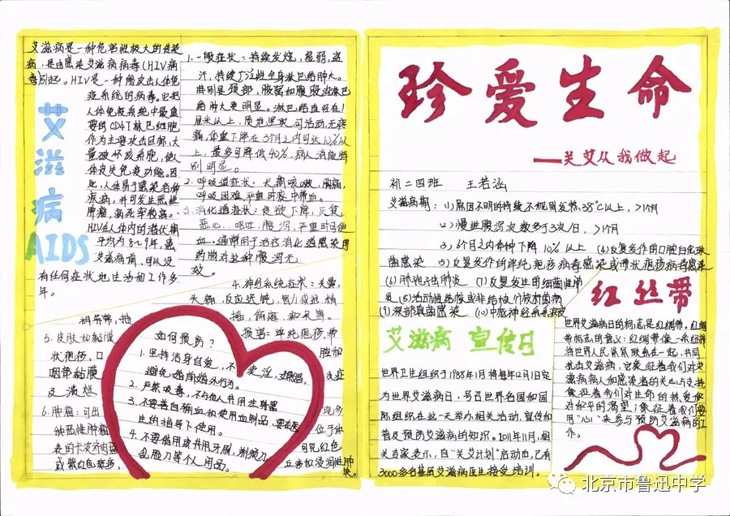 艾滋病是一种危害性极大的传染
病,是由感染艾滋病病毒(HIV病
毒)引起。HIV是一种能攻击人体免
疫系统的病毒。它把
人体免疫系统中最重
要的CD4T淋巴细胞
作为主要攻击目标,大
量破坏该细胞,使人
体丧失免疫功能。因
此,人体易于感染各种
疾病,并可发生恶性
肿瘤,病死率较高。
HIV在人体内的潜伏期
平均为8~9年,患
艾滋病前,可以没
有任何症状地生活和工作多
年。
艾滋病
AIDS
1.一般症状:持续发烧、虚弱、盗
汗,持续广泛性全身淋巴结肿大。
特别是颈部、腋窝和腹股沟淋巴
结肿大更明显。淋巴结直径在1
厘米以上,质地坚实,可活动,无疼
痛。体重下降在3个月之内可达10%以
上,最多可降低40%,病人消瘦特
别明显。
2.呼吸道症状:长期咳嗽、胸痛、
呼吸困难、严重时痰中带血。
3.消化道症状:食欲下降、厌食、
恶心、呕吐、腹泻、严重时可便
血。通常用于治疗消化道感染
的药物对这种腹泻无
效。
4.神经系统症状:头晕、
头痛、反应迟钝、
5.皮肤和黏膜
6.肿瘤:可出
如何预防?
1.坚持洁身自爱,不
2.严禁吸毒,不与他人共用注射器
3.不要擅自输血和使用血制品,要在医
生的指导下使用。
4.不要借用或共用牙刷、剃须刀、
刮脸刀等个人用品。
珍爱生命
——关艾从我做起
初二四班 王若涵
艾滋病期:(1)原因不明的持续不规则发热,38℃以上,>1个月
(2)慢性腹泻次数多于3次/日,>1个月
(3)6个月之内体重下降10%以上 (4)反复发作的口腔白念珠
菌感染 (5)反复发作的单纯疱疹病毒感染或带状疱疹病毒感染
(6)肺孢子虫肺炎 (7)反复发生的细菌性肺
炎 (8)活动性结核或非结核分枝杆菌病
(9)深部真菌感染 (10)中枢神经系统病变
红丝带
艾滋病 宣传日
世界卫生组织于1988年1月将每年12月1日定
为世界艾滋病日,号召世界各国和国
际组织在这一天举办相关活动,宣传和
普及预防艾滋病的知识。2011年11月,相
关专家表示,自“关艾计划”启动后,已有
3000多名基层艾滋病医生接受培训。
世界艾滋病日的标志是红绸带。红绸
带标志的意义:红绸带像一条纽带
将世界人民紧紧联系在一起,共同
抗击艾滋病,它象征着我们对艾
滋病病人和感染者的关心与支持;
象征着我们对生命的热爱
和对和平的渴望;象征着我们要用
“心”来参与预防艾滋病的工
作。
北京市鲁迅中学